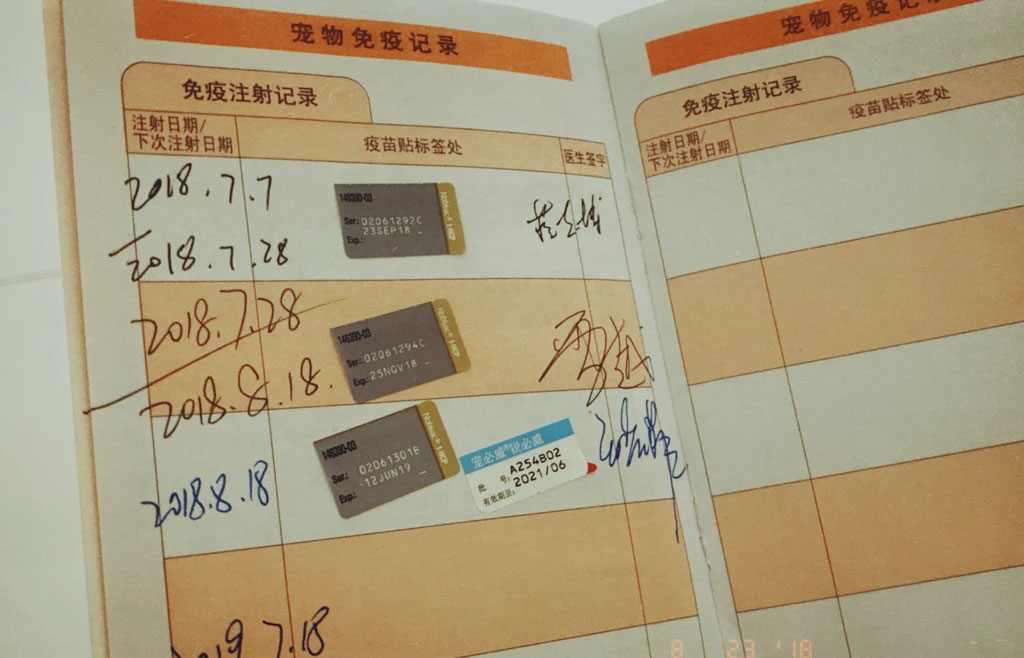 宠物免疫记录
免疫注射记录
注射日期/
下次注射日期
疫苗贴标签处
医生签字
2018.7.7
148390-03
Ser.: 02061292C
23SEP18
Exp.:
2018.7.28
2018.7.28
148390-03
Ser.: 02061294C
Exp.: 25NOV18
2018.8.18.
148390-03
Ser.: 02061301B
Exp.: -12JUN19
宠必威®锐必威
批 号: A254B02
有效期至: 2021/06
2018.8.18
2019.7.18
宠物免疫记录
免疫注射记录
注射日期/
下次注射日期
疫苗贴标签处
8 23 '18